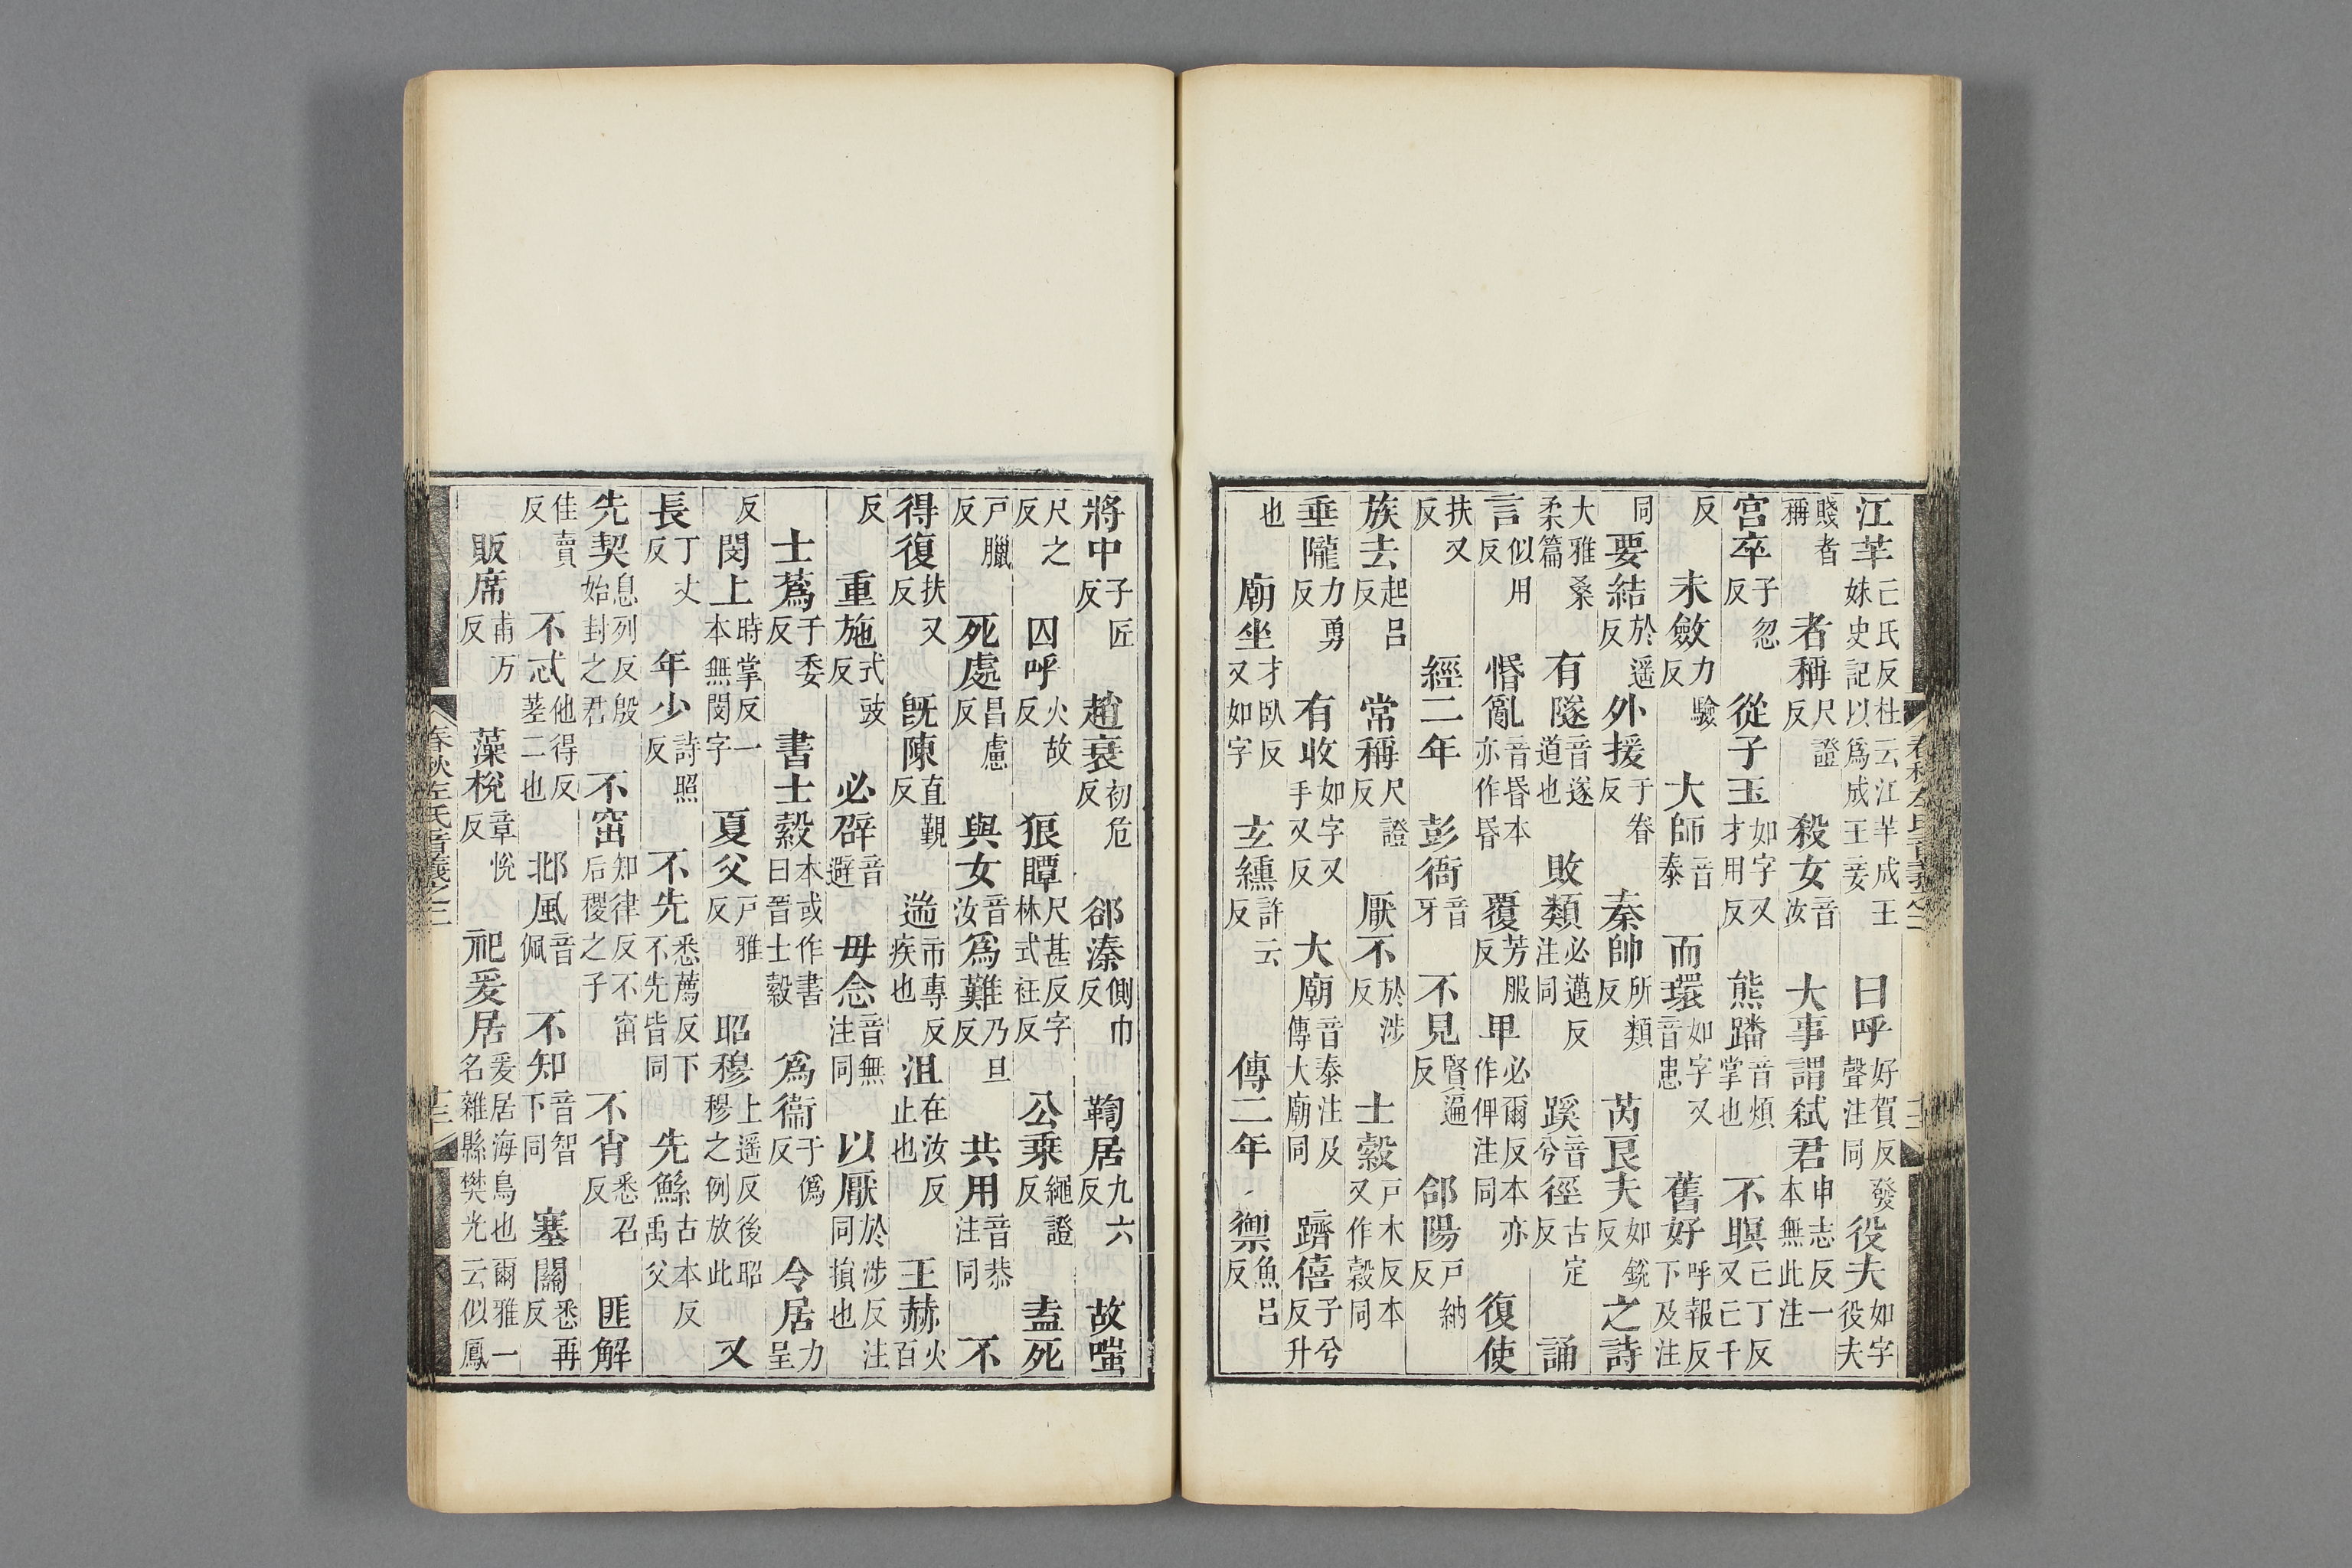 江芈亡氏反杜云江芈成王妹史記以爲成王妾曰呼好賀反發聲注同役夫如字役夫
賤者稱者稱尺證反殺女音汝大事謂弒君申志反一本無此注
宮卒子忽反從子玉如字又才用反熊蹯音煩掌也不瞑亡丁反又亡千
反未斂力驗反大師音泰而環如字又音患舊好呼報反下及注
同要結於遥反外援于眷反秦帥所類反芮良夫如銳反之詩
大雅桑柔篇有隧音遂道也敗類必邁反注同蹊音兮徑古定反誦
言似用反惛亂音昬本亦作昬覆芳服反卑必爾反本亦作俾注同復使
扶又反經二年彭衙音牙不見賢遍反郃陽戸納反
族去起呂反常稱尺證反厭不於涉反士縠戸木反本又作穀同
垂隴力勇反有收如字又手又反大廟音泰注及傳大廟同躋僖子兮反升
也廟坐才臥反又如字玄纁許云反傳二年禦魚呂反
將中子匠反趙衰初危反郤溱側巾反鞫居九六反故嗤
尺之反囚呼火故反狼瞫尺甚反字林式衽反公乘繩證反盍死
戸臘反死處昌慮反與女音汝爲難乃旦反共用音恭注同不
得復扶又反旣陳直覲反遄市專反疾也沮在汝反止也王赫火百
反重施式豉反必辟音避毋念音無注同以厭於涉反注同損也
士蒍于委反書士縠本或作書曰晉士縠爲衞于僞反令居力呈
反閔上時掌反一本無閔字夏父戸雅反昭穆上遥反後昭穆之例放此又
長丁丈反年少詩照反不先悉薦反下不先皆同先鯀古本反禹父
先契息列反殷始封之君不窋知律反不窋后稷之子不肖悉召反匪解
佳賣反不忒他得反差二也邶風音佩不知音智下同塞關悉再反
販席甫万反藻梲章悅反祀爰居爰居海鳥也爾雅一名雜縣樊光云似鳳
春秋左氏音義之二